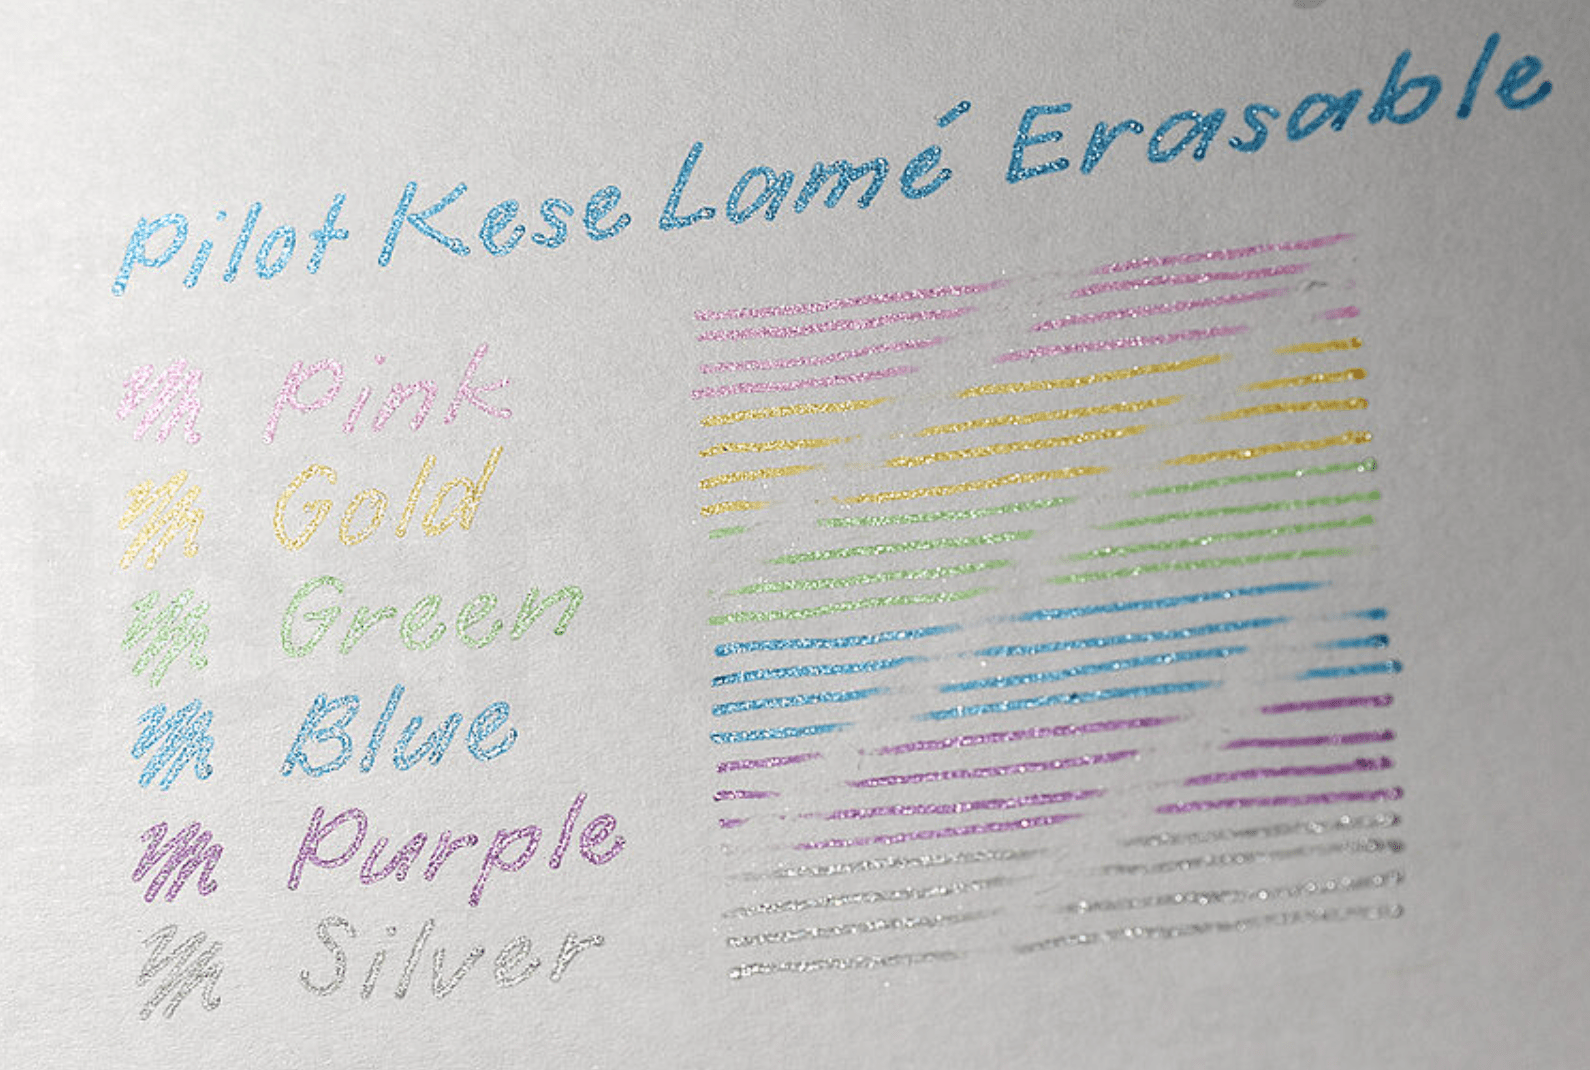 Pilot Kese Lamé Erasable
Pink
Gold
Green
Blue
Purple
Silver